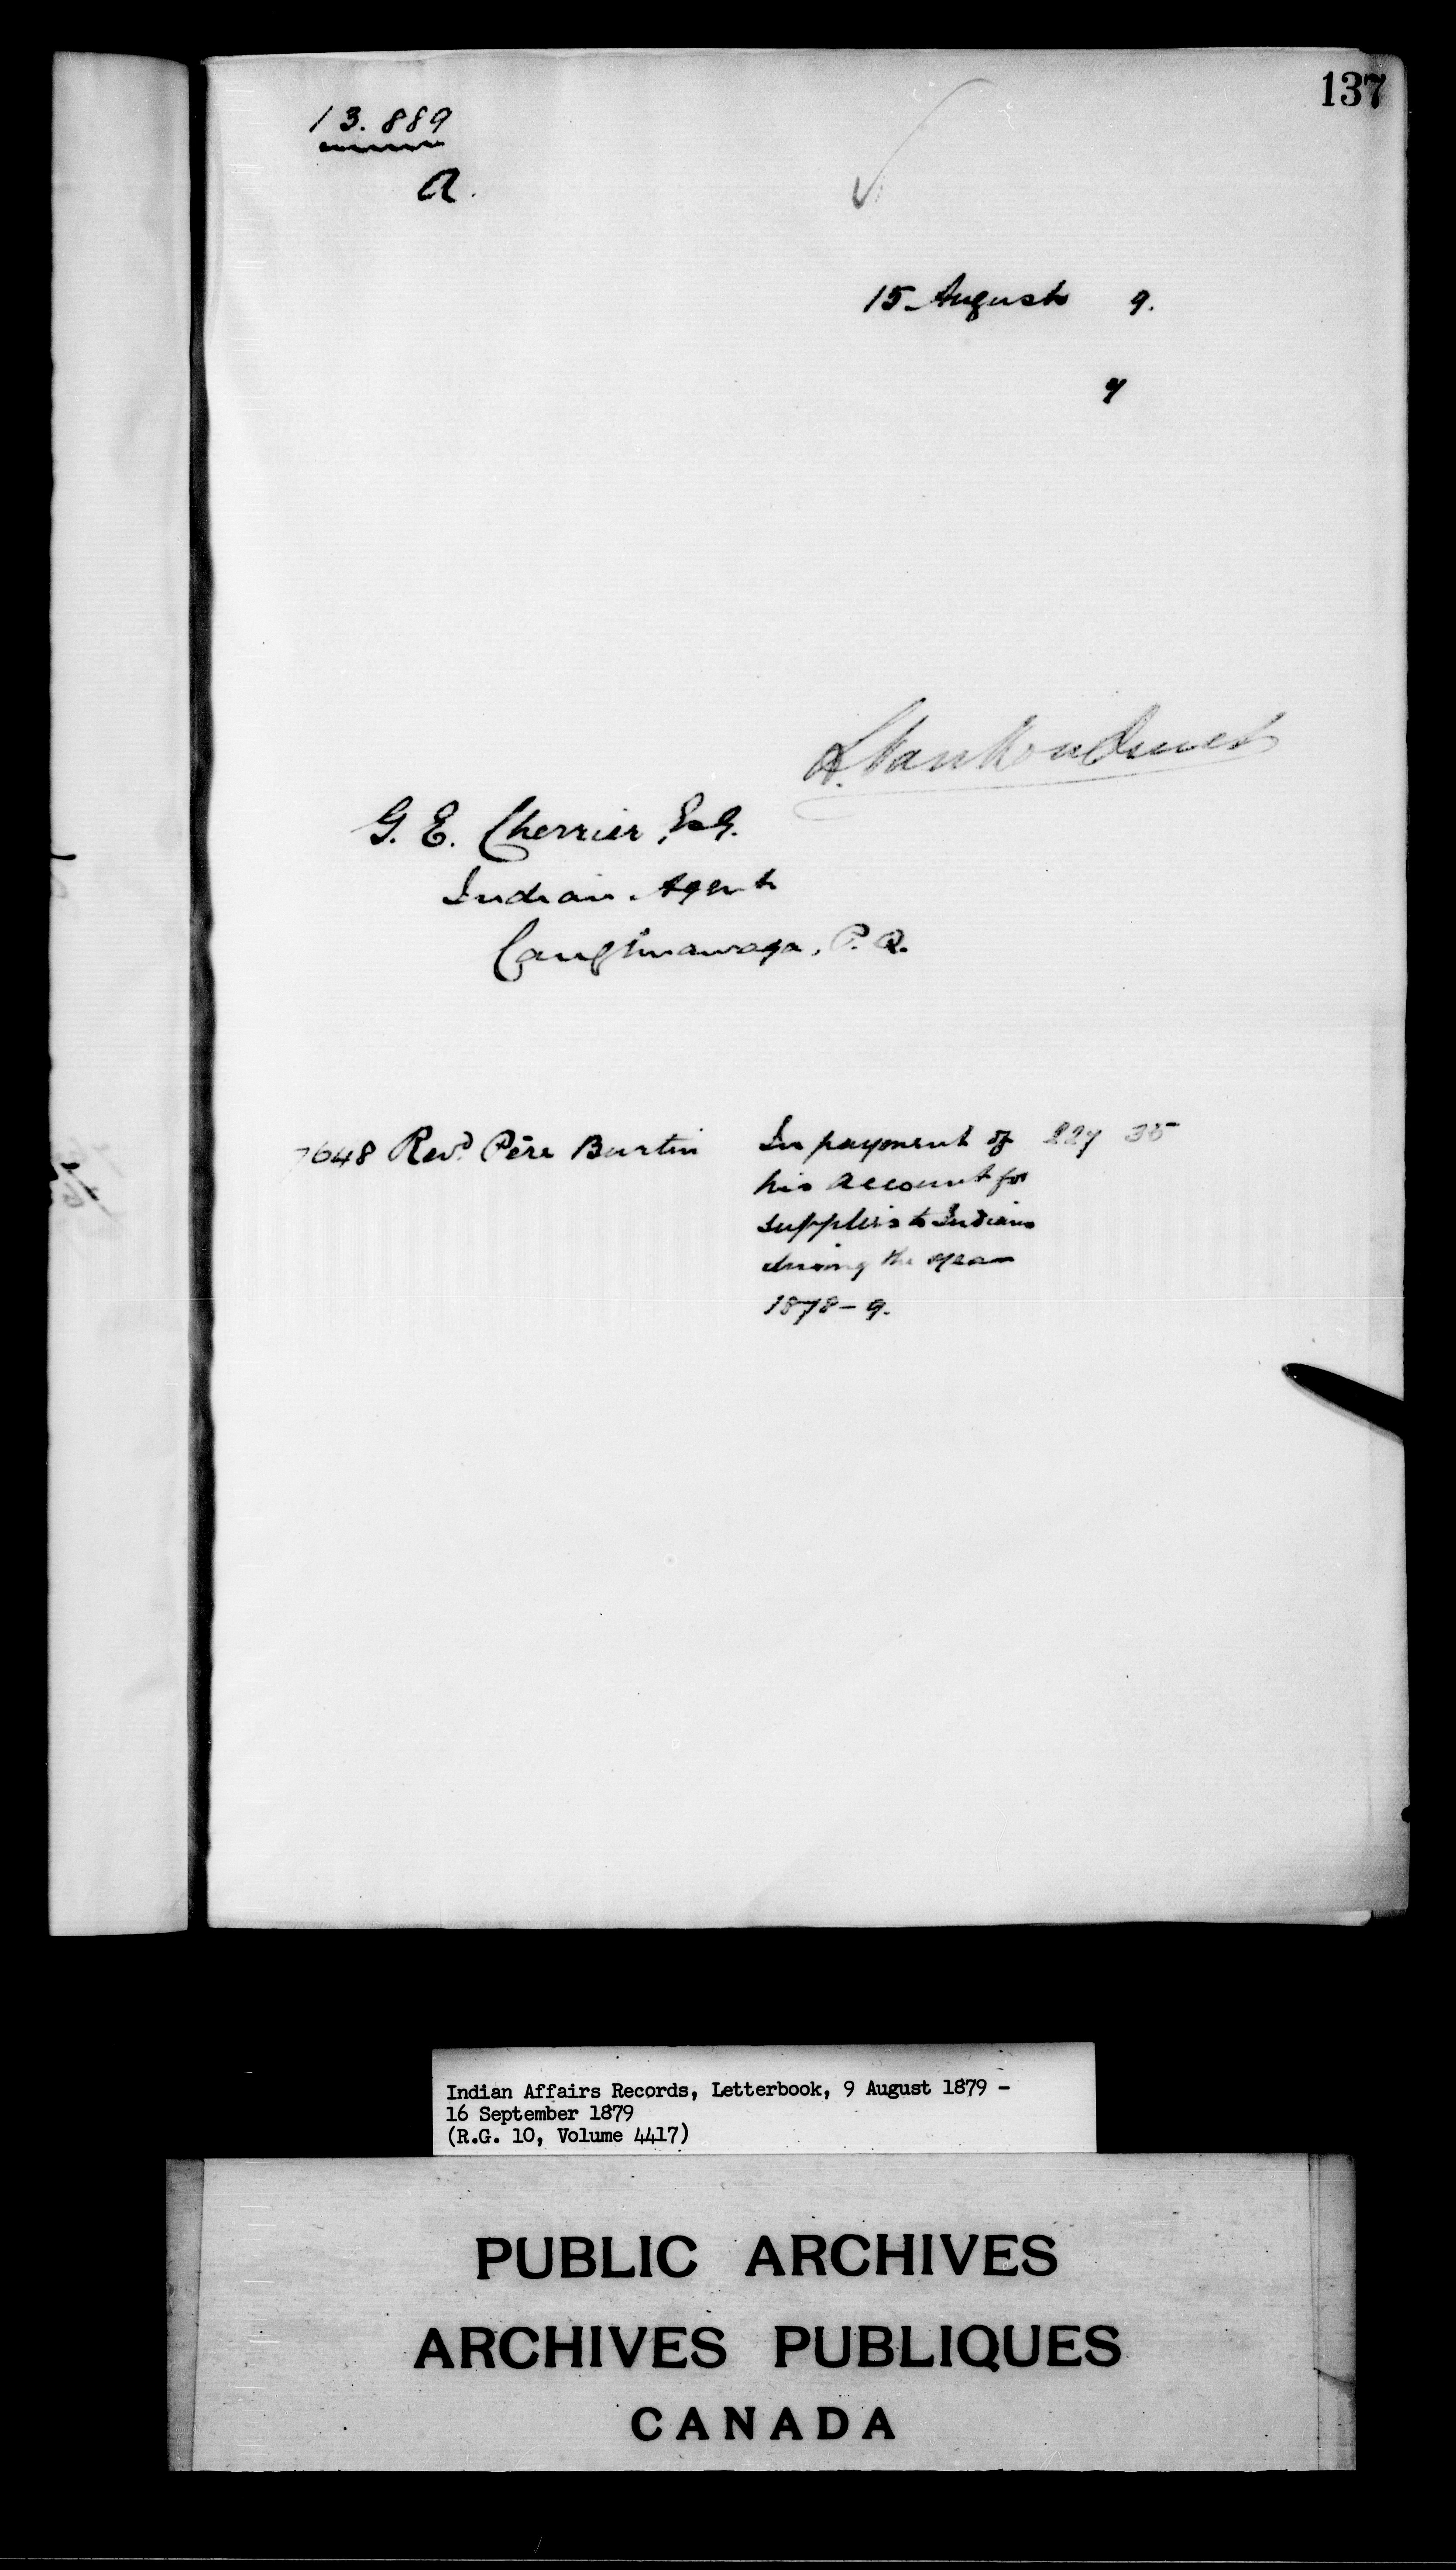 137
13.889
A.
15 August 9.
y
L. VanKoughnet
G. E. Cherrier, Esq.
Indian Agent
Caughnawaga, P. Q.
7648 Revd. Père Burtin In payment of 227 35
his account for
supplies to Indians
during the year
1878-9.
Indian Affairs Records, Letterbook, 9 August 1879 -
16 September 1879
(R.G. 10, Volume 4417)
PUBLIC ARCHIVES
ARCHIVES PUBLIQUES
CANADA